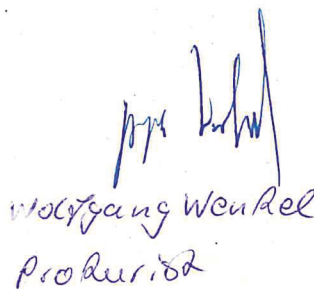 Wolfgang Wenkel
Prokurist